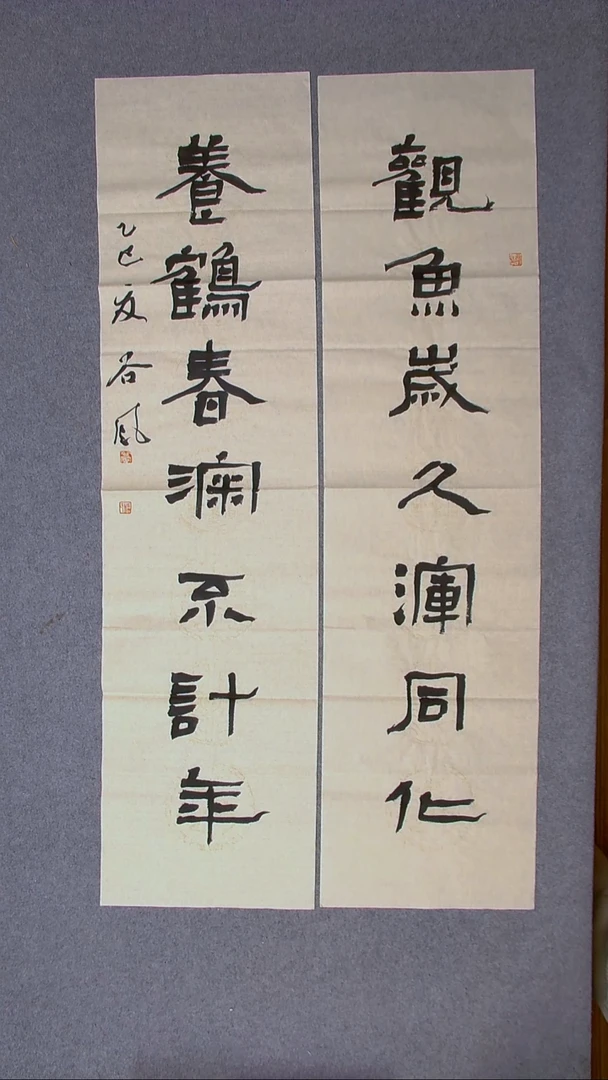 觀魚歲久渾同化
養鶴春深不計年
乙巳夏 谷風